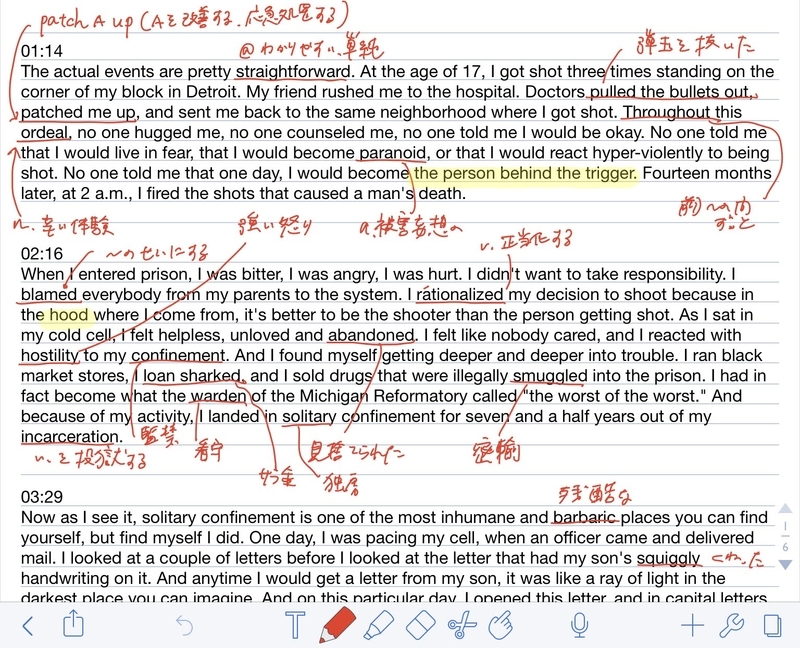 patch A up (Aを改善する、応急処置する)
01:14
@わかりやすい、単純
弾丸を抜いた
The actual events are pretty straightforward. At the age of 17, I got shot three times standing on the
corner of my block in Detroit. My friend rushed me to the hospital. Doctors pulled the bullets out,
patched me up, and sent me back to the same neighborhood where I got shot. Throughout this
ordeal, no one hugged me, no one counseled me, no one told me I would be okay. No one told me
that I would live in fear, that I would become paranoid, or that I would react hyper-violently to being
shot. No one told me that one day, I would become the person behind the trigger. Fourteen months
later, at 2 a.m., I fired the shots that caused a man's death.
n. 辛い体験
強い怒り
a.被害妄想の
前 〜の間
ずっと
02:16
〜のせいにする
v. 正当化する
When I entered prison, I was bitter, I was angry, I was hurt. I didn't want to take responsibility. I
blamed everybody from my parents to the system. I rationalized my decision to shoot because in
the hood where I come from, it's better to be the shooter than the person getting shot. As I sat in
my cold cell, I felt helpless, unloved and abandoned. I felt like nobody cared, and I reacted with
hostility to my confinement. And I found myself getting deeper and deeper into trouble. I ran black
market stores, I loan sharked, and I sold drugs that were illegally smuggled into the prison. I had in
fact become what the warden of the Michigan Reformatory called "the worst of the worst." And
because of my activity, I landed in solitary confinement for seven and a half years out of my
incarceration.
監禁
看守
見捨てられた
密輸
を投獄する
独房
03:29
残酷な
Now as I see it, solitary confinement is one of the most inhumane and barbaric places you can find
yourself, but find myself I did. One day, I was pacing my cell, when an officer came and delivered
mail. I looked at a couple of letters before I looked at the letter that had my son's squiggly
handwriting on it. And anytime I would get a letter from my son, it was like a ray of light in the
darkest place you can imagine. And on this particular day, I opened this letter, and in capital letters
1
6
T